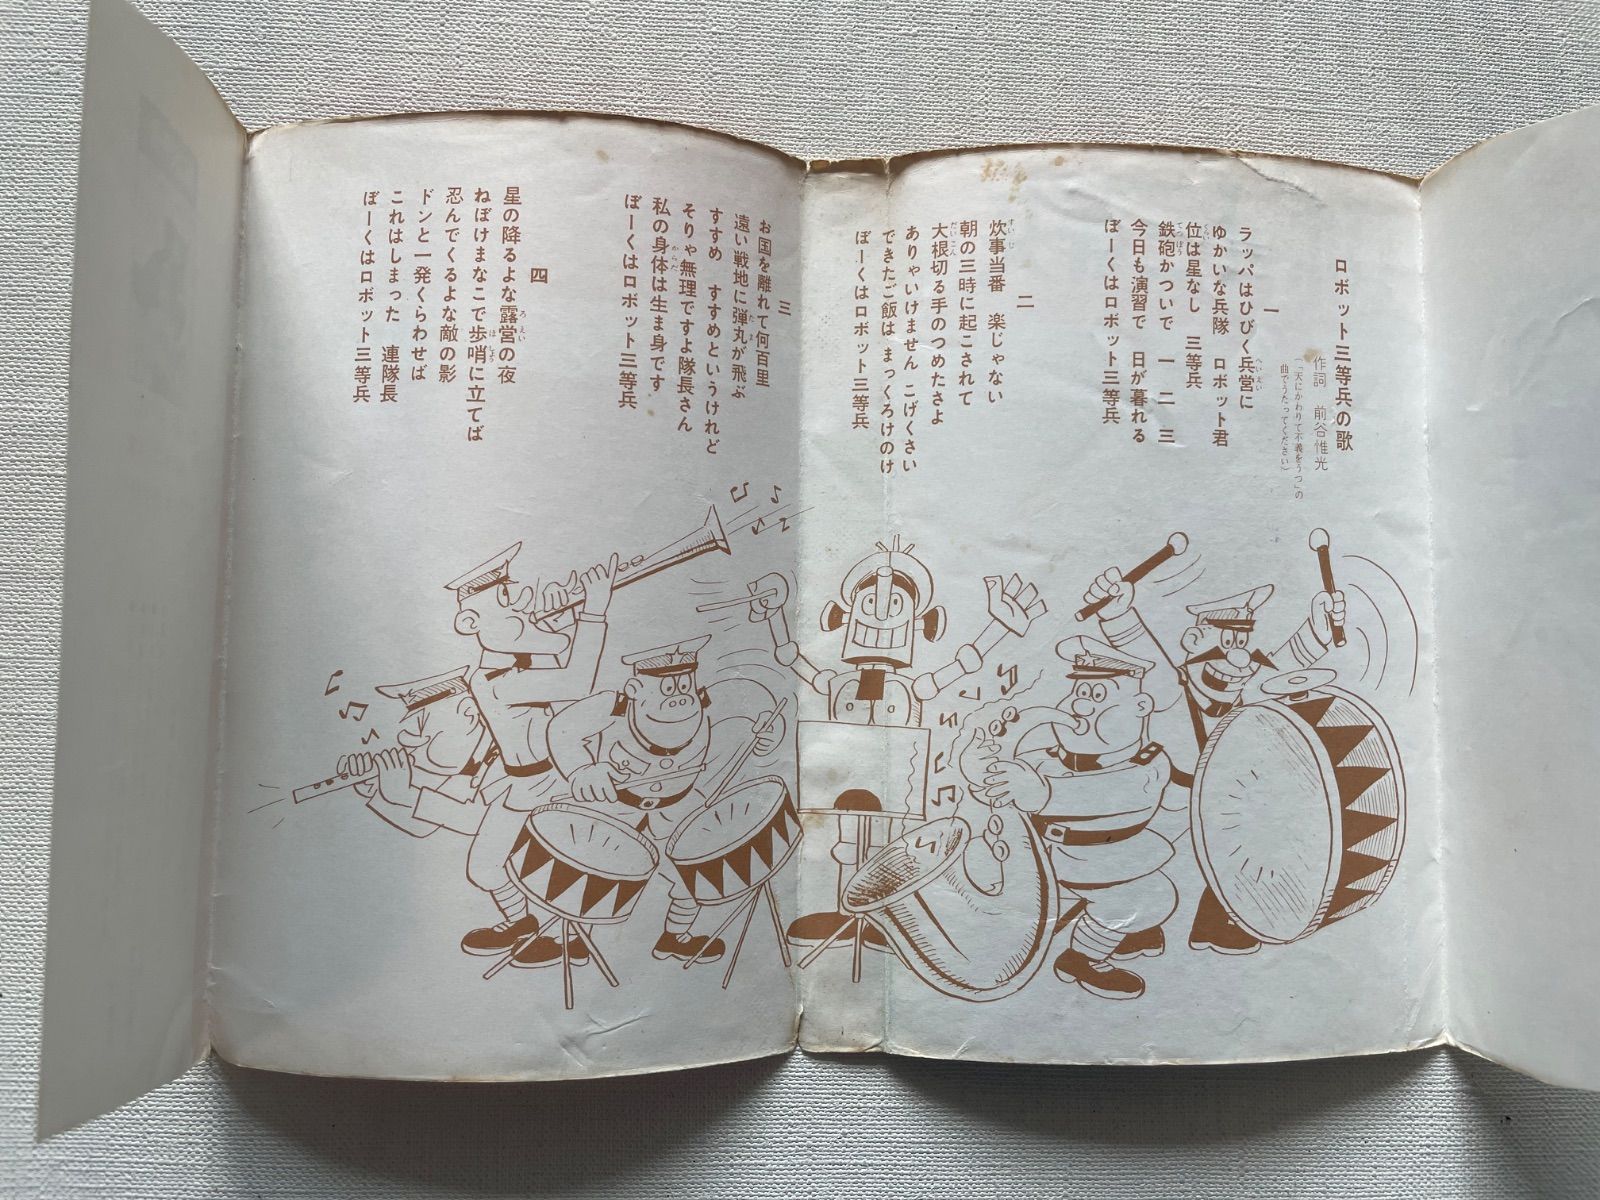 ロボット三等兵の歌
作詞 前谷惟光
(「天にかわりて不義をうつ」の
曲でうたってください)
一
ラッパはひびく兵営に
ゆかいな兵隊 ロボット君
位は星なし 三等兵
鉄砲かついで 一 二 三
今日も演習で 日が暮れる
ぼーくはロボット三等兵
二
炊事当番 楽じゃない
朝の三時に起こされて
大根切る手のつめたさよ
ありゃいけません こげくさい
できたご飯は まっくろけのけ
ぼーくはロボット三等兵
三
お国を離れて何百里
遠い戦地に弾丸が飛ぶ
すすめ すすめというけれど
そりゃ無理ですよ隊長さん
私の身体は生ま身です
ぼーくはロボット三等兵
四
星の降るよな露営の夜
ねぼけまなこで歩哨に立てば
忍んでくるよな敵の影
ドンと一発くらわせば
これはしまった 連隊長
ぼーくはロボット三等兵